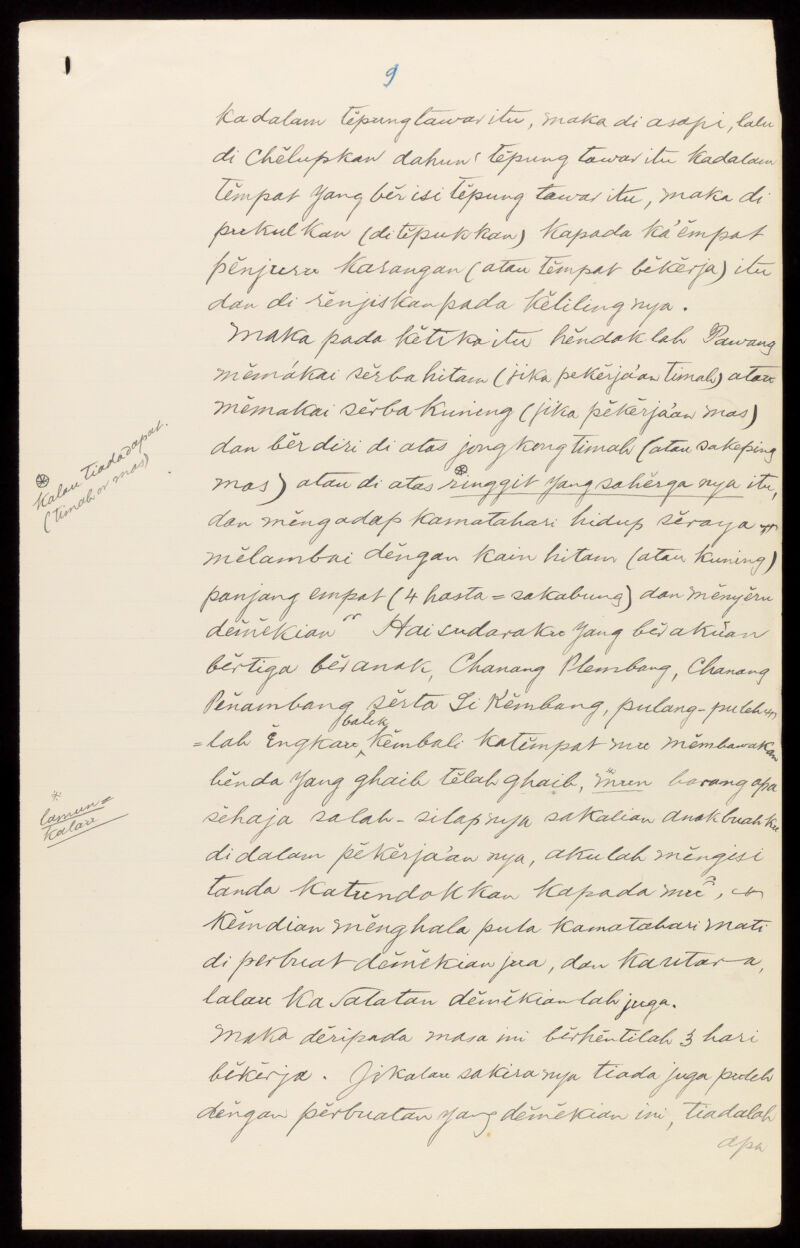 9
ka dalam tĕpung tawar itu, maka di asapi, lalu
di chĕlupkan dahun² tĕpung tawar itu kadalam
tĕmpat yang bĕrisi tĕpung tawar itu, maka di
pukulkan (ditĕpukkan) kapada ka'ĕmpat
pĕnjuru karangan (atau tĕmpat bĕkĕrja) itu
dan di rĕnjiskan pada kĕliling nya.
Maka pada kĕtika itu hĕndak lah Pawang
mĕmákai sĕrba hitam (jika pekĕrja'an timah) atau
mĕmakai sĕrba kuning (jika pĕkĕrja'an mas)
dan bĕrdiri di atas jongkong timah (atau sakeping
mas) atau di atas ⊛ ringgit yang sahĕrga nya itu,
⊛ kalau tiada dapat.
(timah or mas)
dan mĕngadap kamatahari hidup sĕraya
mĕlambai dĕngan kain hitam (atau kuning)
panjang empat (4 hasta = sakabung) dan mĕnyĕru
dĕmĕkian " Hai sudaraku yang bĕrakuan
bĕrtiga bĕranak, Chanang Plembang, Chanang
Pĕnambang sĕrta Si Kĕmbang, pulang-puleh
=lah Ĕngkau balik kĕmbali katĕmpat mu mĕmbawakan
bĕnda yang ghaib tĕlah ghaib, *mun barang apa
* lamun =
kalau
sĕhaja salah-silap nya sakalian anak buah ku
didalam pĕkĕrja'an nya, akulah mĕngisi
tanda katundokkan kapada mu",
kĕmdian mĕnghala pula kamatahari mati
di perbuat dĕmĕkian jua, dan kautara,
lalau ka Salatan dĕmĕkian lah juga.
Maka dĕripada masa ini bĕrhĕntilah 3 hari
bĕkĕrja. Jikalau sakira nya tiada juga puleh
dĕngan pĕrbuatan yang dĕmĕkian ini, tiadalah
apa